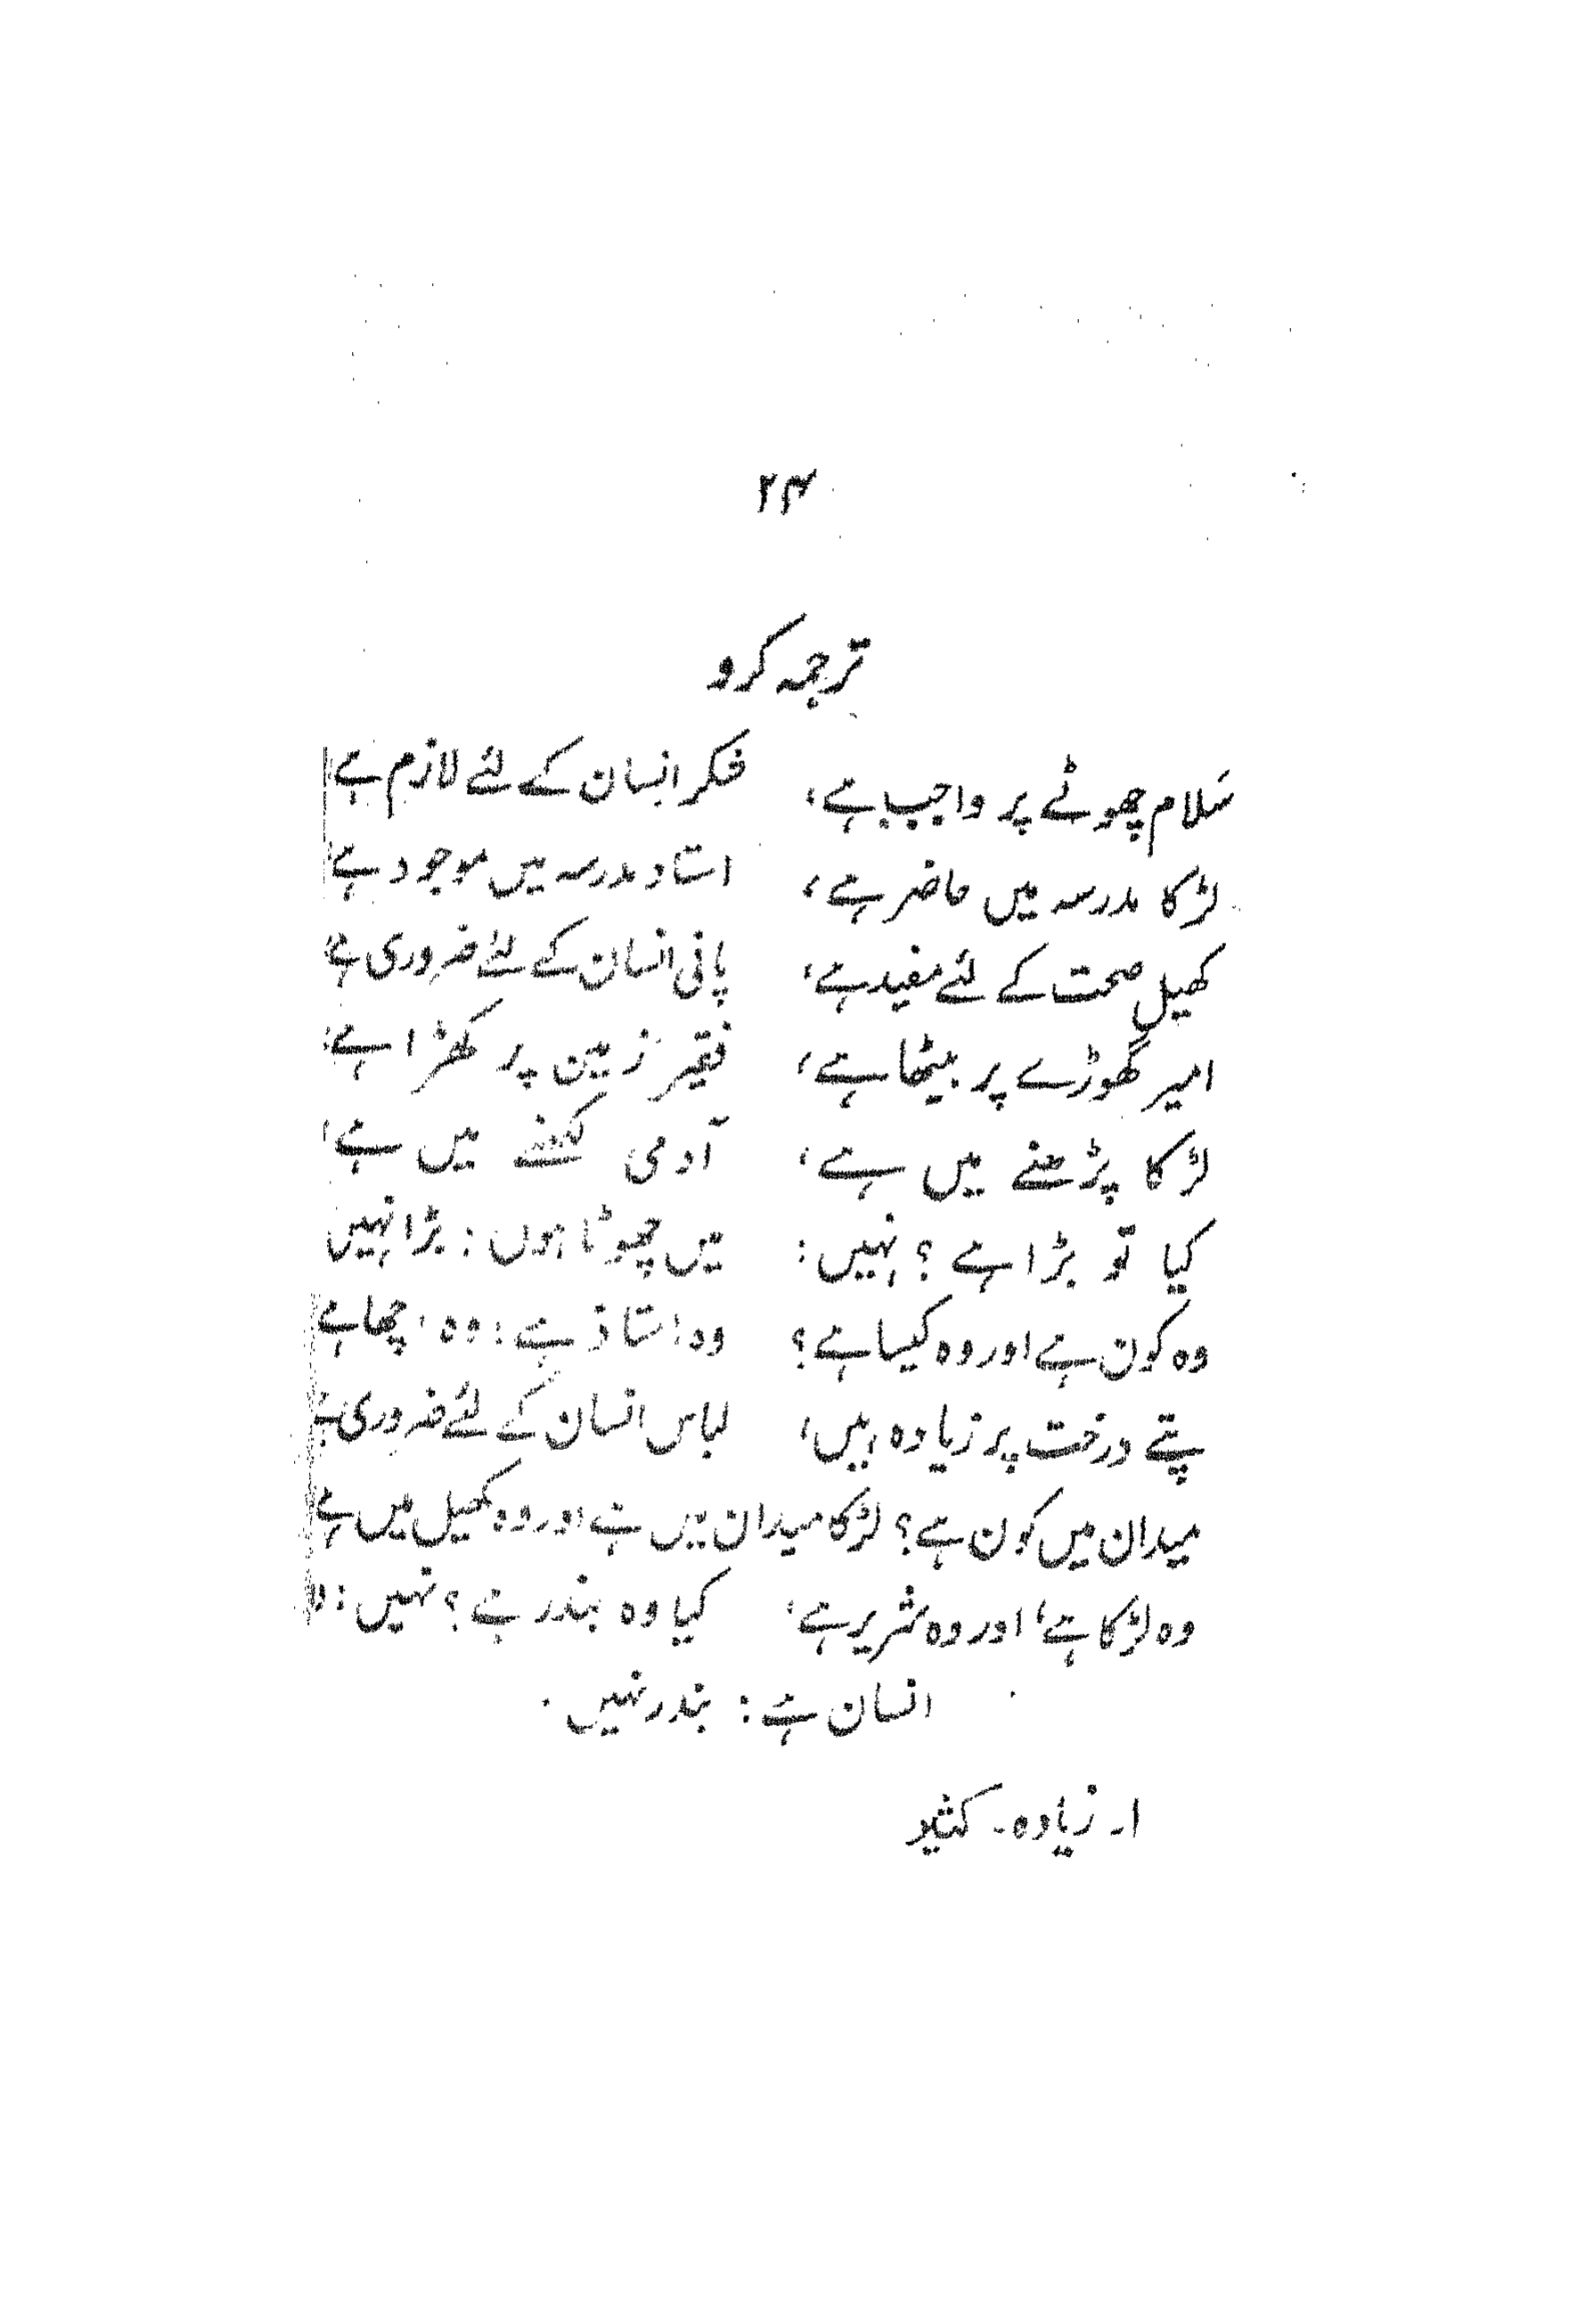 ۲۴
ترجمہ کرو
سَلام چھوٹے پر واجب ہے، فکر انسان کے لئے لازم ہے
لڑکا مدرسہ میں حاضر ہے، استاد مدرسہ میں موجود ہے
کھیل صحت کے لئے مفید ہے، پانی انسان کے لئے ضروری ہے
امیر گھوڑے پر بیٹھا ہے، فقیر زمین پر کھڑا ہے،
لڑکا پڑھنے میں ہے، آدمی لکھنے میں ہے،
کیا تو بڑا ہے؟ نہیں: میں چھوٹا ہوں: بڑا نہیں
وہ کون ہے اور وہ کیسا ہے؟ وہ استاذ ہے: وہ اچھا ہے
پتے درخت پر زیادہ ہیں، لباس انسان کے لئے ضروری ہے
میدان میں کون ہے؟ لڑکا میدان میں ہے اور وہ کھیل میں ہے
وہ لڑکا ہے، اور وہ شریر ہے، کیا وہ بندر ہے؟ نہیں:
انسان ہے: بندر نہیں۔
۱۔ زیادہ۔ کثیر